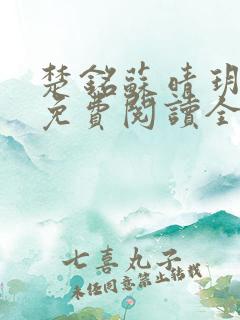 楚銘蘇晴玥
免費閱讀全
七喜丸子
未经同意禁止转载